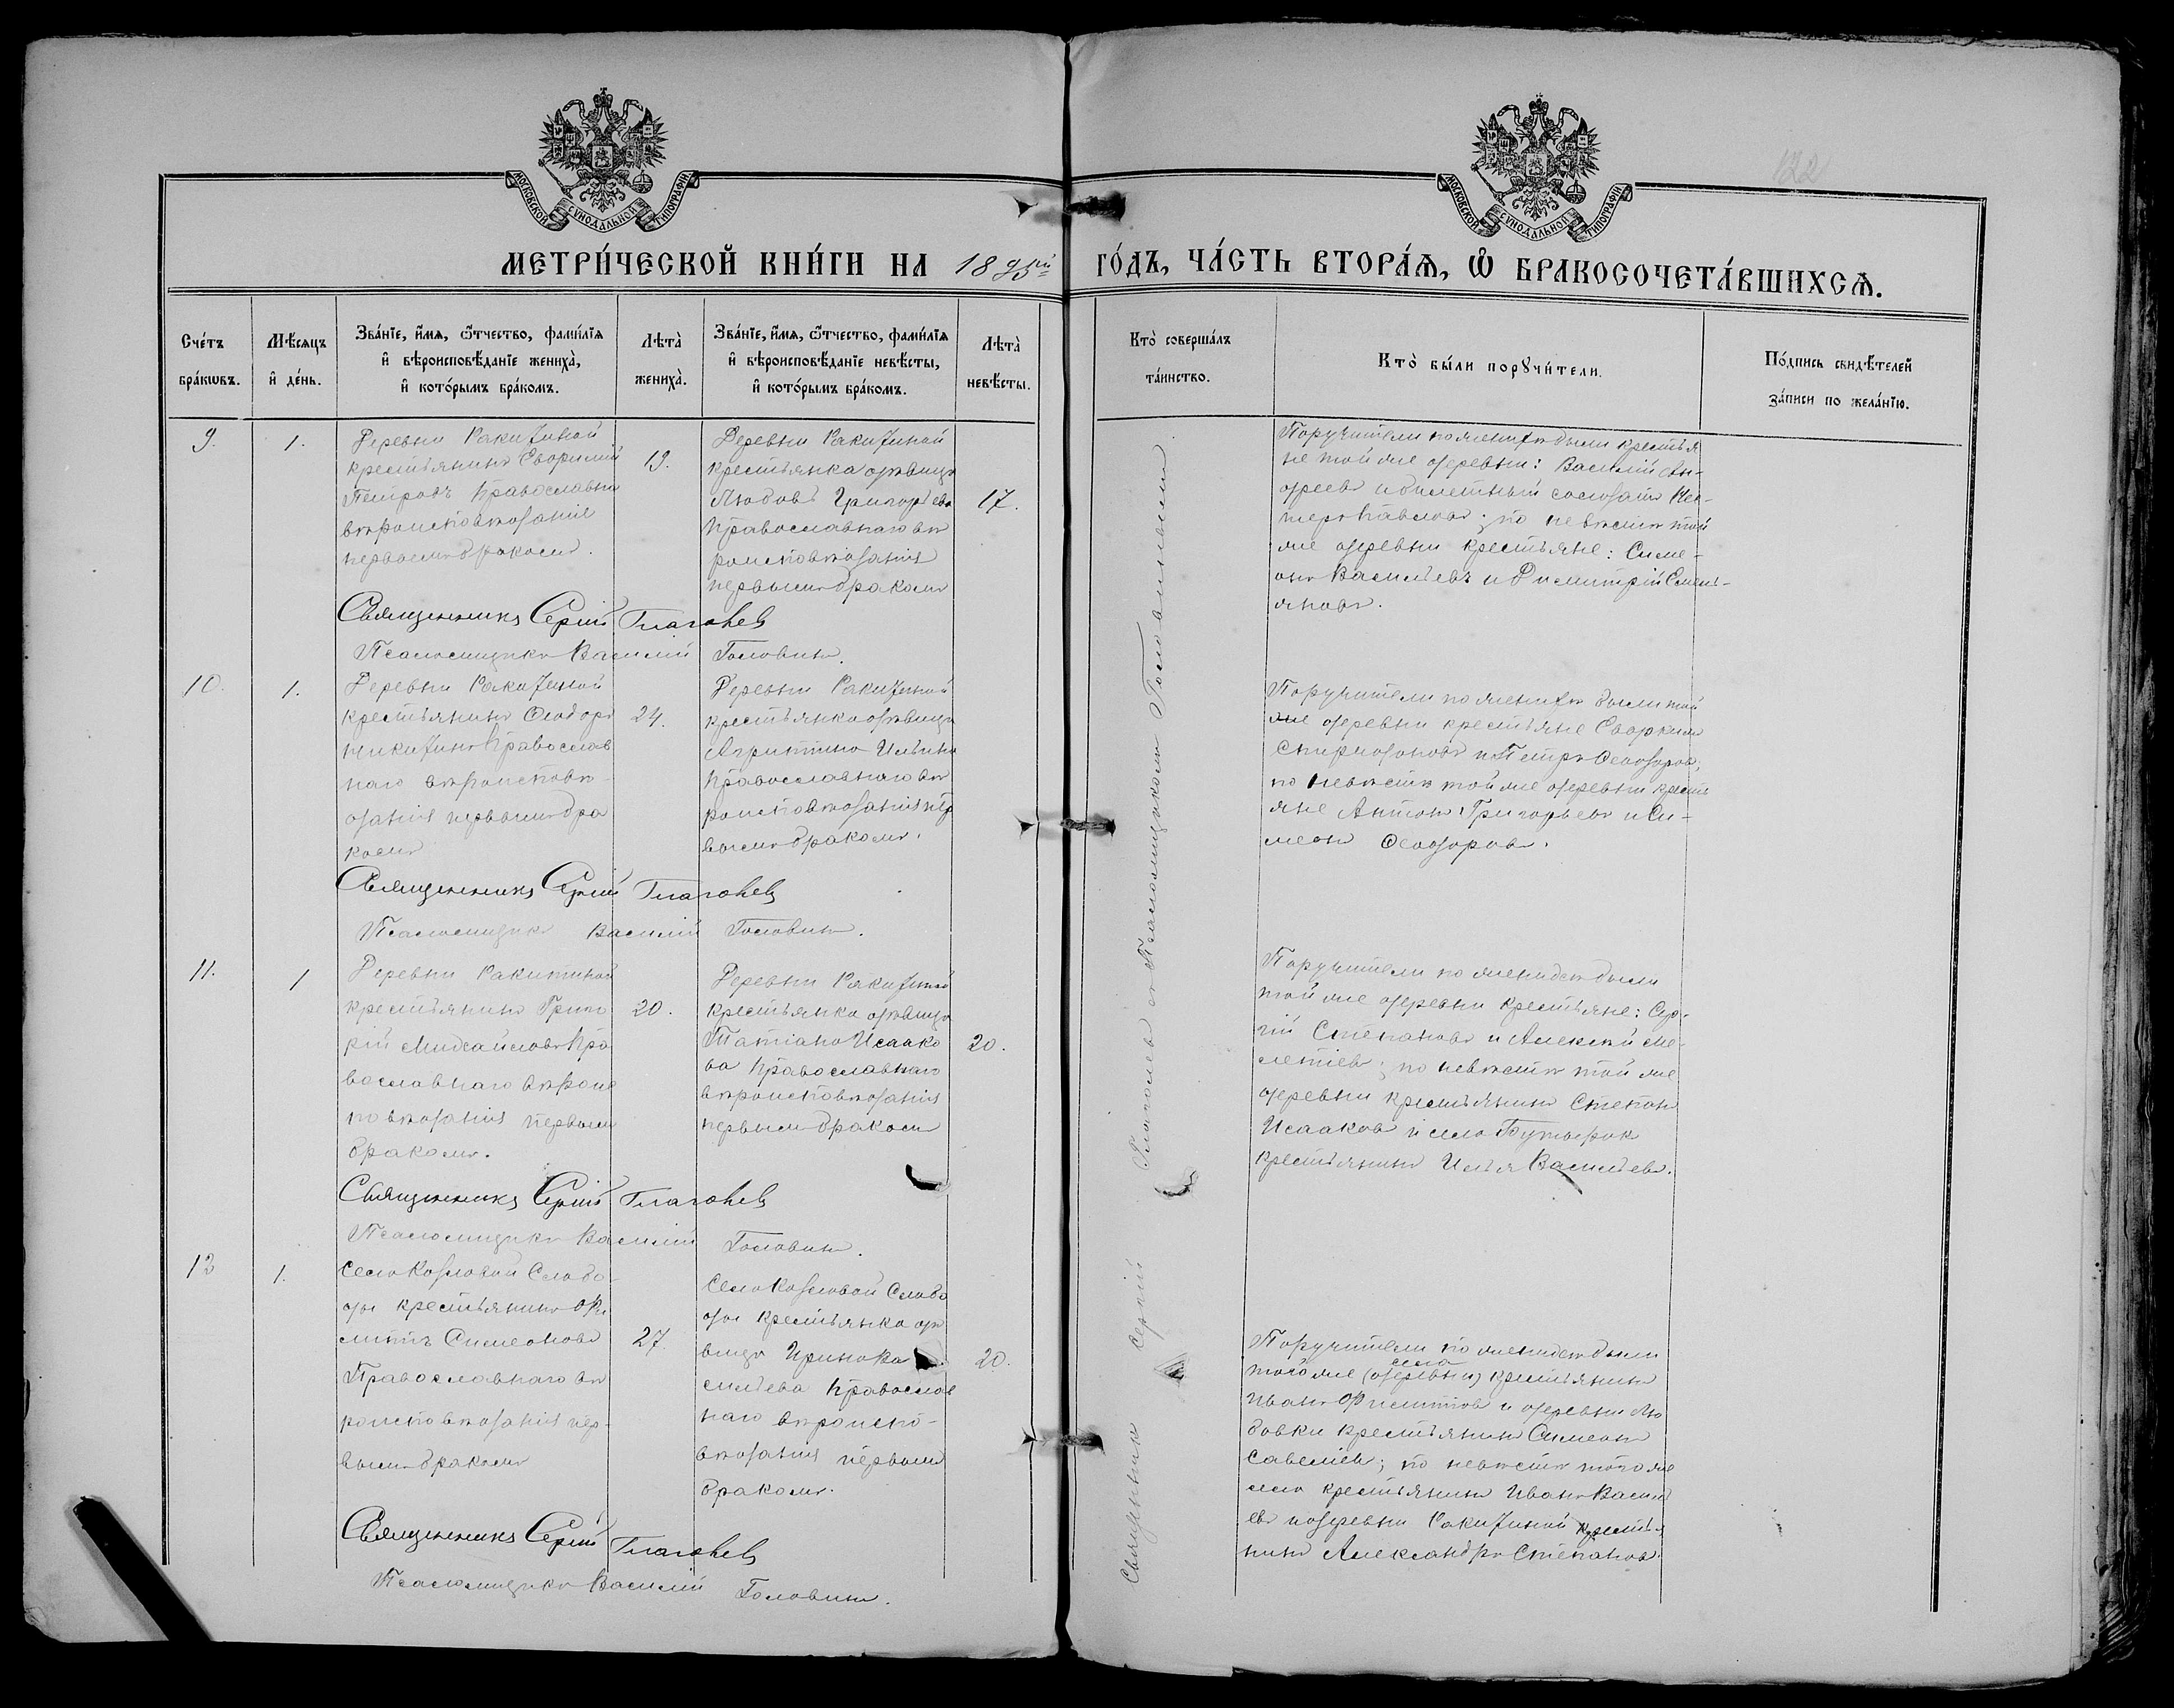 МОСКОВСКОЙ СѴНОДАЛЬНОЙ ТИПОГРАФІИ
МОСКОВСКОЙ СѴНОДАЛЬНОЙ ТИПОГРАФІИ
122
МЕТРИ́ЧЕСКОЙ КНИ́ГИ НА 1895й ГО́ДЪ, ЧА́СТЬ ВТОРА́Ѧ, Ѡ҆ БРАКОСОЧЕТА́ВШИХСѦ.
Сче́тъ
бра́кѡвъ.
Мѣ́сяцъ
и҆ де́нь.
Зва́нїе, и҆́мѧ, ѻ҆́тчество, фами́лїѧ
и҆ вѣроисповѣ́данїе жениха̀,
и҆ кото́рымъ бра́комъ.
Лѣта̀
жениха̀.
Зва́нїе, и҆́мѧ, ѻ҆́тчество, фами́лїѧ
и҆ вѣроисповѣ́данїе невѣ́сты,
и҆ кото́рымъ бра́комъ.
Лѣта̀
невѣ́сты.
Кто̀ соверша́лъ
та́инство.
Кто̀ бы́ли порꙋчи́тели.
По́дпись свидѣ́телей
за́писи по жела́нїю.
9.
1.
Деревни Ракитиной
крестьянинъ
Петровъ Православна
вѣроисповѣданія
первымъ бракомъ.
19.
Деревни Ракитиной
крестьянка дѣвица
Любовь Григорьева
Православнаго вѣ
роисповѣданія
первымъ бракомъ
17.
Поручители по женихѣ были крестья
не той же деревни: Василій Ан-
дреевъ и билетный солдатъ Пе-
теръ Павловъ; по невѣстѣ той
же деревни крестьяне: Симе-
онъ Васильевъ и Димитрій Емель-
яновъ.
Священникъ Сергій Глаголевъ
Псаломщикъ Василій Головинъ.
10.
1.
Деревни Ракитиной
крестьянинъ Ѳеодоръ
Никитинъ Православ
наго вѣроисповѣ-
данія первымъ бра
комъ
24.
Деревни Ракитиной
крестьянка дѣвица
Ильина
Православнаго вѣ
роисповѣданія пер
вымъ бракомъ.
Поручители по женихѣ были той
же деревни крестьяне
Спиридоновъ и Петръ Ѳеодоровъ;
по невѣстѣ той же деревни кресть
яне Антонъ Григорьевъ и Си-
меонъ Ѳеодоровъ.
Священникъ Сергій Глаголевъ
Псаломщикъ Василій Головинъ.
11.
1
Деревни Ракитиной
крестьянинъ Григо
рій Михайловъ Пра
вославнаго вѣроис
повѣданія первымъ
бракомъ.
20.
Деревни Ракитиной
крестьянка дѣвица
Татіана Исаако
ва Православнаго
вѣроисповѣданія
первымъ бракомъ
20.
Поручители по женихѣ были
той же деревни крестьяне: Сер-
гій Степановъ и Алексій Ме-
летіевъ; по невѣстѣ той же
деревни крестьянинъ Степанъ
Исааковъ и села
крестьянинъ Илья Васильевъ.
Священникъ Сергій Глаголевъ
Псаломщикъ Василій Головинъ.
12
1.
Села Козловой Слобо-
ды крестьянинъ
Симеоновъ
Православнаго вѣ
роисповѣданія пер-
вымъ бракомъ
27.
Села Козловой Слобо
ды крестьянка дѣ
вица Ирина Ва
сильева Православ
наго вѣроиспо-
вѣданія первымъ
бракомъ.
20.
Поручители по женихѣ были
села
того же (деревни) крестьянинъ
Иванъ и деревни Лю
бовки крестьянинъ Симеонъ
Савельевъ; по невѣстѣ того же
села крестьянинъ Иванъ Василь
евъ и деревни Ракитиной крестья
нинъ Александръ Степановъ.
Священникъ Сергій Глаголевъ
Псаломщикъ Василій Головинъ.
Священникъ Сергій Глаголевъ съ Псаломщикомъ Головинымъ